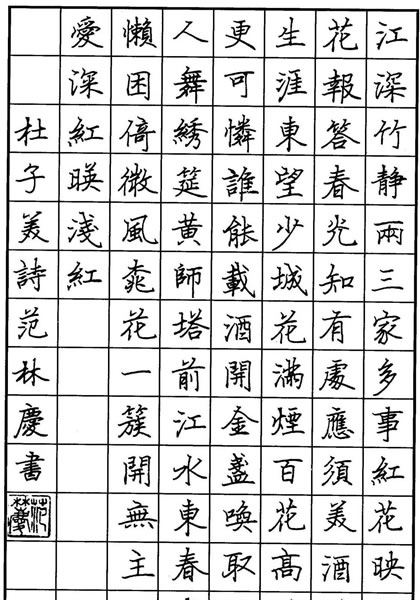 江深竹靜兩三家多事紅花映
花報答春光知有處應須美酒
生涯東望少城花滿煙百花高
更可憐誰能載酒開金盞喚取
人舞綉筵黃師塔前江水東春
懶困倚微風桃花一簇開無主
愛深紅暎淺紅
杜子美詩范林慶書